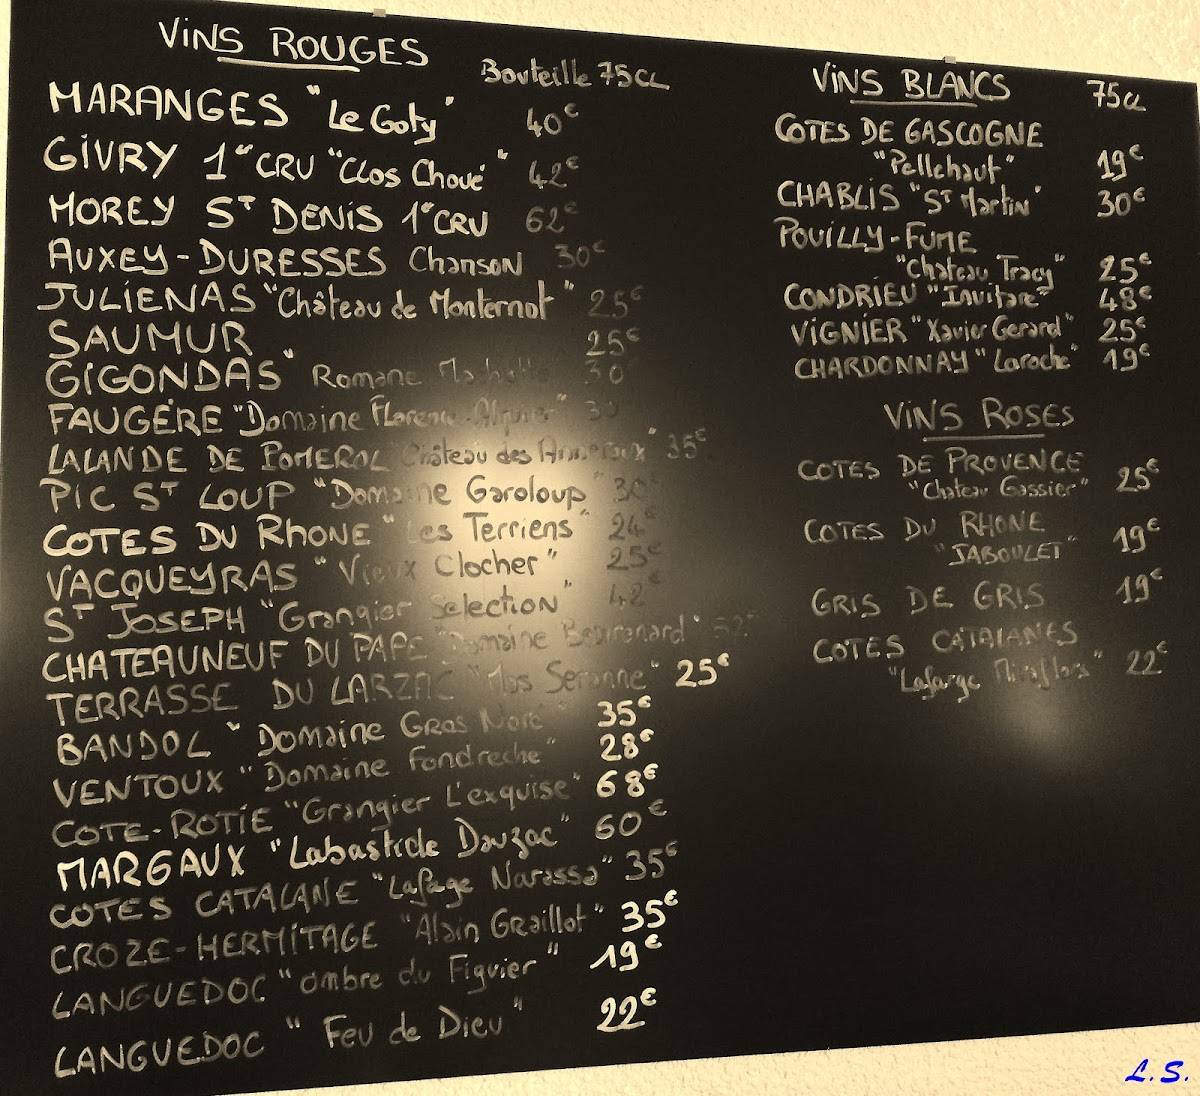 VINS ROUGES Bouteille 75CL
MARANGES "Le Goty" 40€
GIVRY 1er CRU "Clos Choué" 42€
MOREY ST DENIS 1er CRU 62€
AUXEY-DURESSES Chanson 30€
JULIENAS "Château de Monternot" 25€
SAUMUR 25€
GIGONDAS" Romane 30
FAUGÈRE "Domaine
LALANDE DE POMEROL Château des 35€
PIC ST LOUP "Domaine Garoloup" 30
COTES DU RHONE "Les Terriens" 24€
VACQUEYRAS "Vieux Clocher" 25€
ST JOSEPH "Grangier Selection" 42€
CHATEAUNEUF DU PAPE "Domaine
TERRASSE DU LARZAC "Mas Seranne" 25€
BANDOL "Domaine GROS Noré" 35€
VENTOUX "Domaine Fondreche" 28€
COTE-ROTIE "Grangier L'exquise" 68€
MARGAUX "Labastide Dauzac" 60€
COTES CATALANE "Lafage Narassa" 35€
CROZE-HERMITAGE "Alain Graillot" 35€
LANGUEDOC "ombre du Figuier" 19€
LANGUEDOC "Feu de Dieu" 22€
VINS BLANCS 75CL
COTES DE GASCOGNE
"Pellehaut" 19€
CHABLIS "ST Martin" 30€
POUILLY-FUME
"Chateau Tracy" 25€
CONDRIEU "Invitare" 48€
VIGNIER "Xavier Gerard" 25€
CHARDONNAY "Laroche" 19€
VINS ROSES
COTES DE PROVENCE
"Chateau Gassier" 25€
COTES DU RHONE
"JABOULET" 19€
GRIS DE GRIS 19€
COTES CATALANES
"Lafarge Miraflors" 22€
L.S.